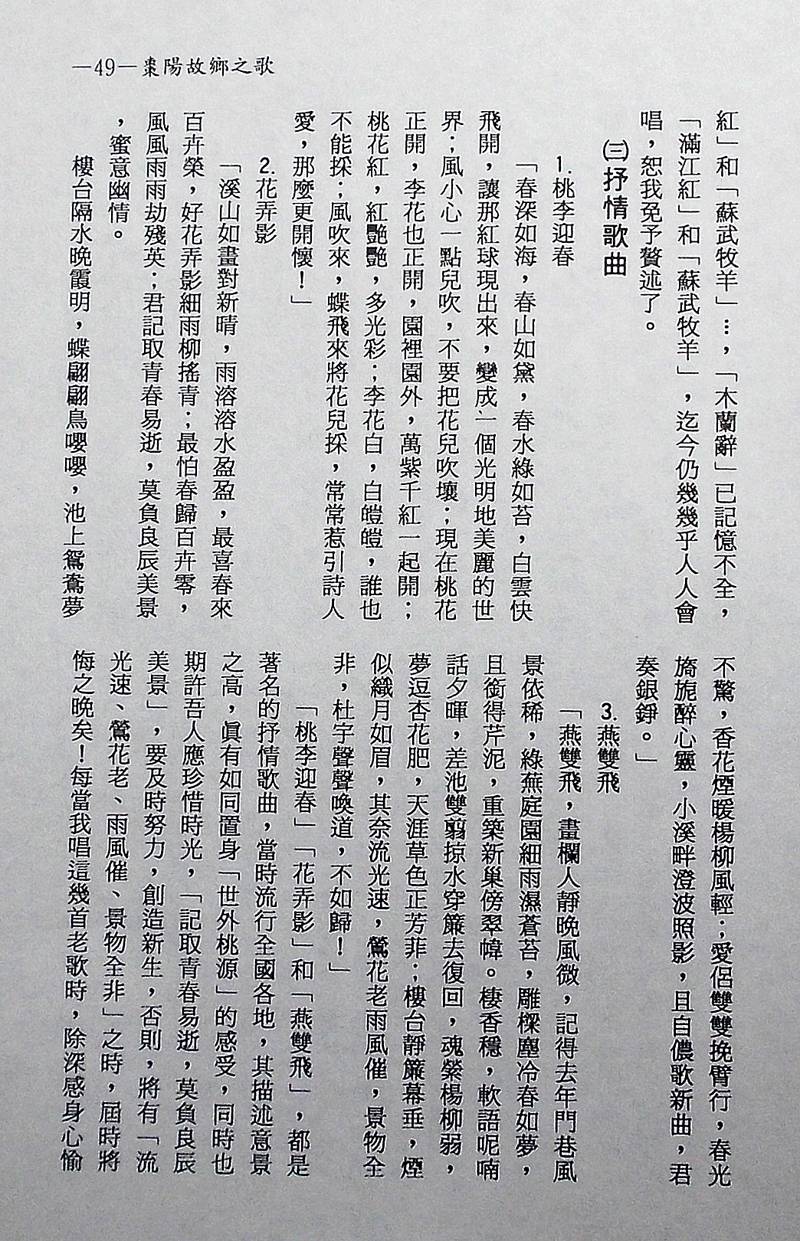 —49—棗陽故鄉之歌
紅」和「蘇武牧羊」…，「木蘭辭」已記憶不全，
「滿江紅」和「蘇武牧羊」，迄今仍幾幾乎人人會
唱，恕我免予贅述了。
㈢抒情歌曲
1.桃李迎春
「春深如海，春山如黛，春水綠如苔，白雲快
飛開，讓那紅球現出來，變成一個光明地美麗的世
界；風小心一點兒吹，不要把花兒吹壞；現在桃花
正開，李花也正開，園裡園外，萬紫千紅一起開；
桃花紅，紅艷艷，多光彩；李花白，白皚皚，誰也
不能採；風吹來，蝶飛來將花兒採，常常惹引詩人
愛，那麼更開懷！」
2.花弄影
「溪山如畫對新晴，雨溶溶水盈盈，最喜春來
百卉榮，好花弄影細雨柳搖青；最怕春歸百卉零，
風風雨雨劫殘英；君記取青春易逝，莫負良辰美景
，蜜意幽情。
樓台隔水晚霞明，蝶翩翩鳥嚶嚶，池上鴛鴦夢
不驚，香花煙暖楊柳風輕；愛侶雙雙挽臂行，春光
旖旎醉心靈，小溪畔澄波照影，且自儂歌新曲，君
奏銀錚。」
3.燕雙飛
「燕雙飛，畫欄人靜晚風微，記得去年門巷風
景依稀，綠蕪庭園細雨濕蒼苔，雕樑塵冷春如夢，
且銜得芹泥，重築新巢傍翠幃。棲香穩，軟語呢喃
話夕暉，差池雙翦掠水穿簾去復回，魂縈楊柳弱，
夢逗杏花肥，天涯草色正芳菲；樓台靜簾幕垂，煙
似織月如眉，其奈流光速，鶯花老雨風催，景物全
非，杜宇聲聲喚道，不如歸！」
「桃李迎春」「花弄影」和「燕雙飛」，都是
著名的抒情歌曲，當時流行全國各地，其描述意景
之高，真有如同置身「世外桃源」的感受，同時也
期許吾人應珍惜時光，「記取青春易逝，莫負良辰
美景」，要及時努力，創造新生，否則，將有「流
光速、鶯花老、雨風催、景物全非」之時，屆時將
悔之晚矣！每當我唱這幾首老歌時，除深感身心愉